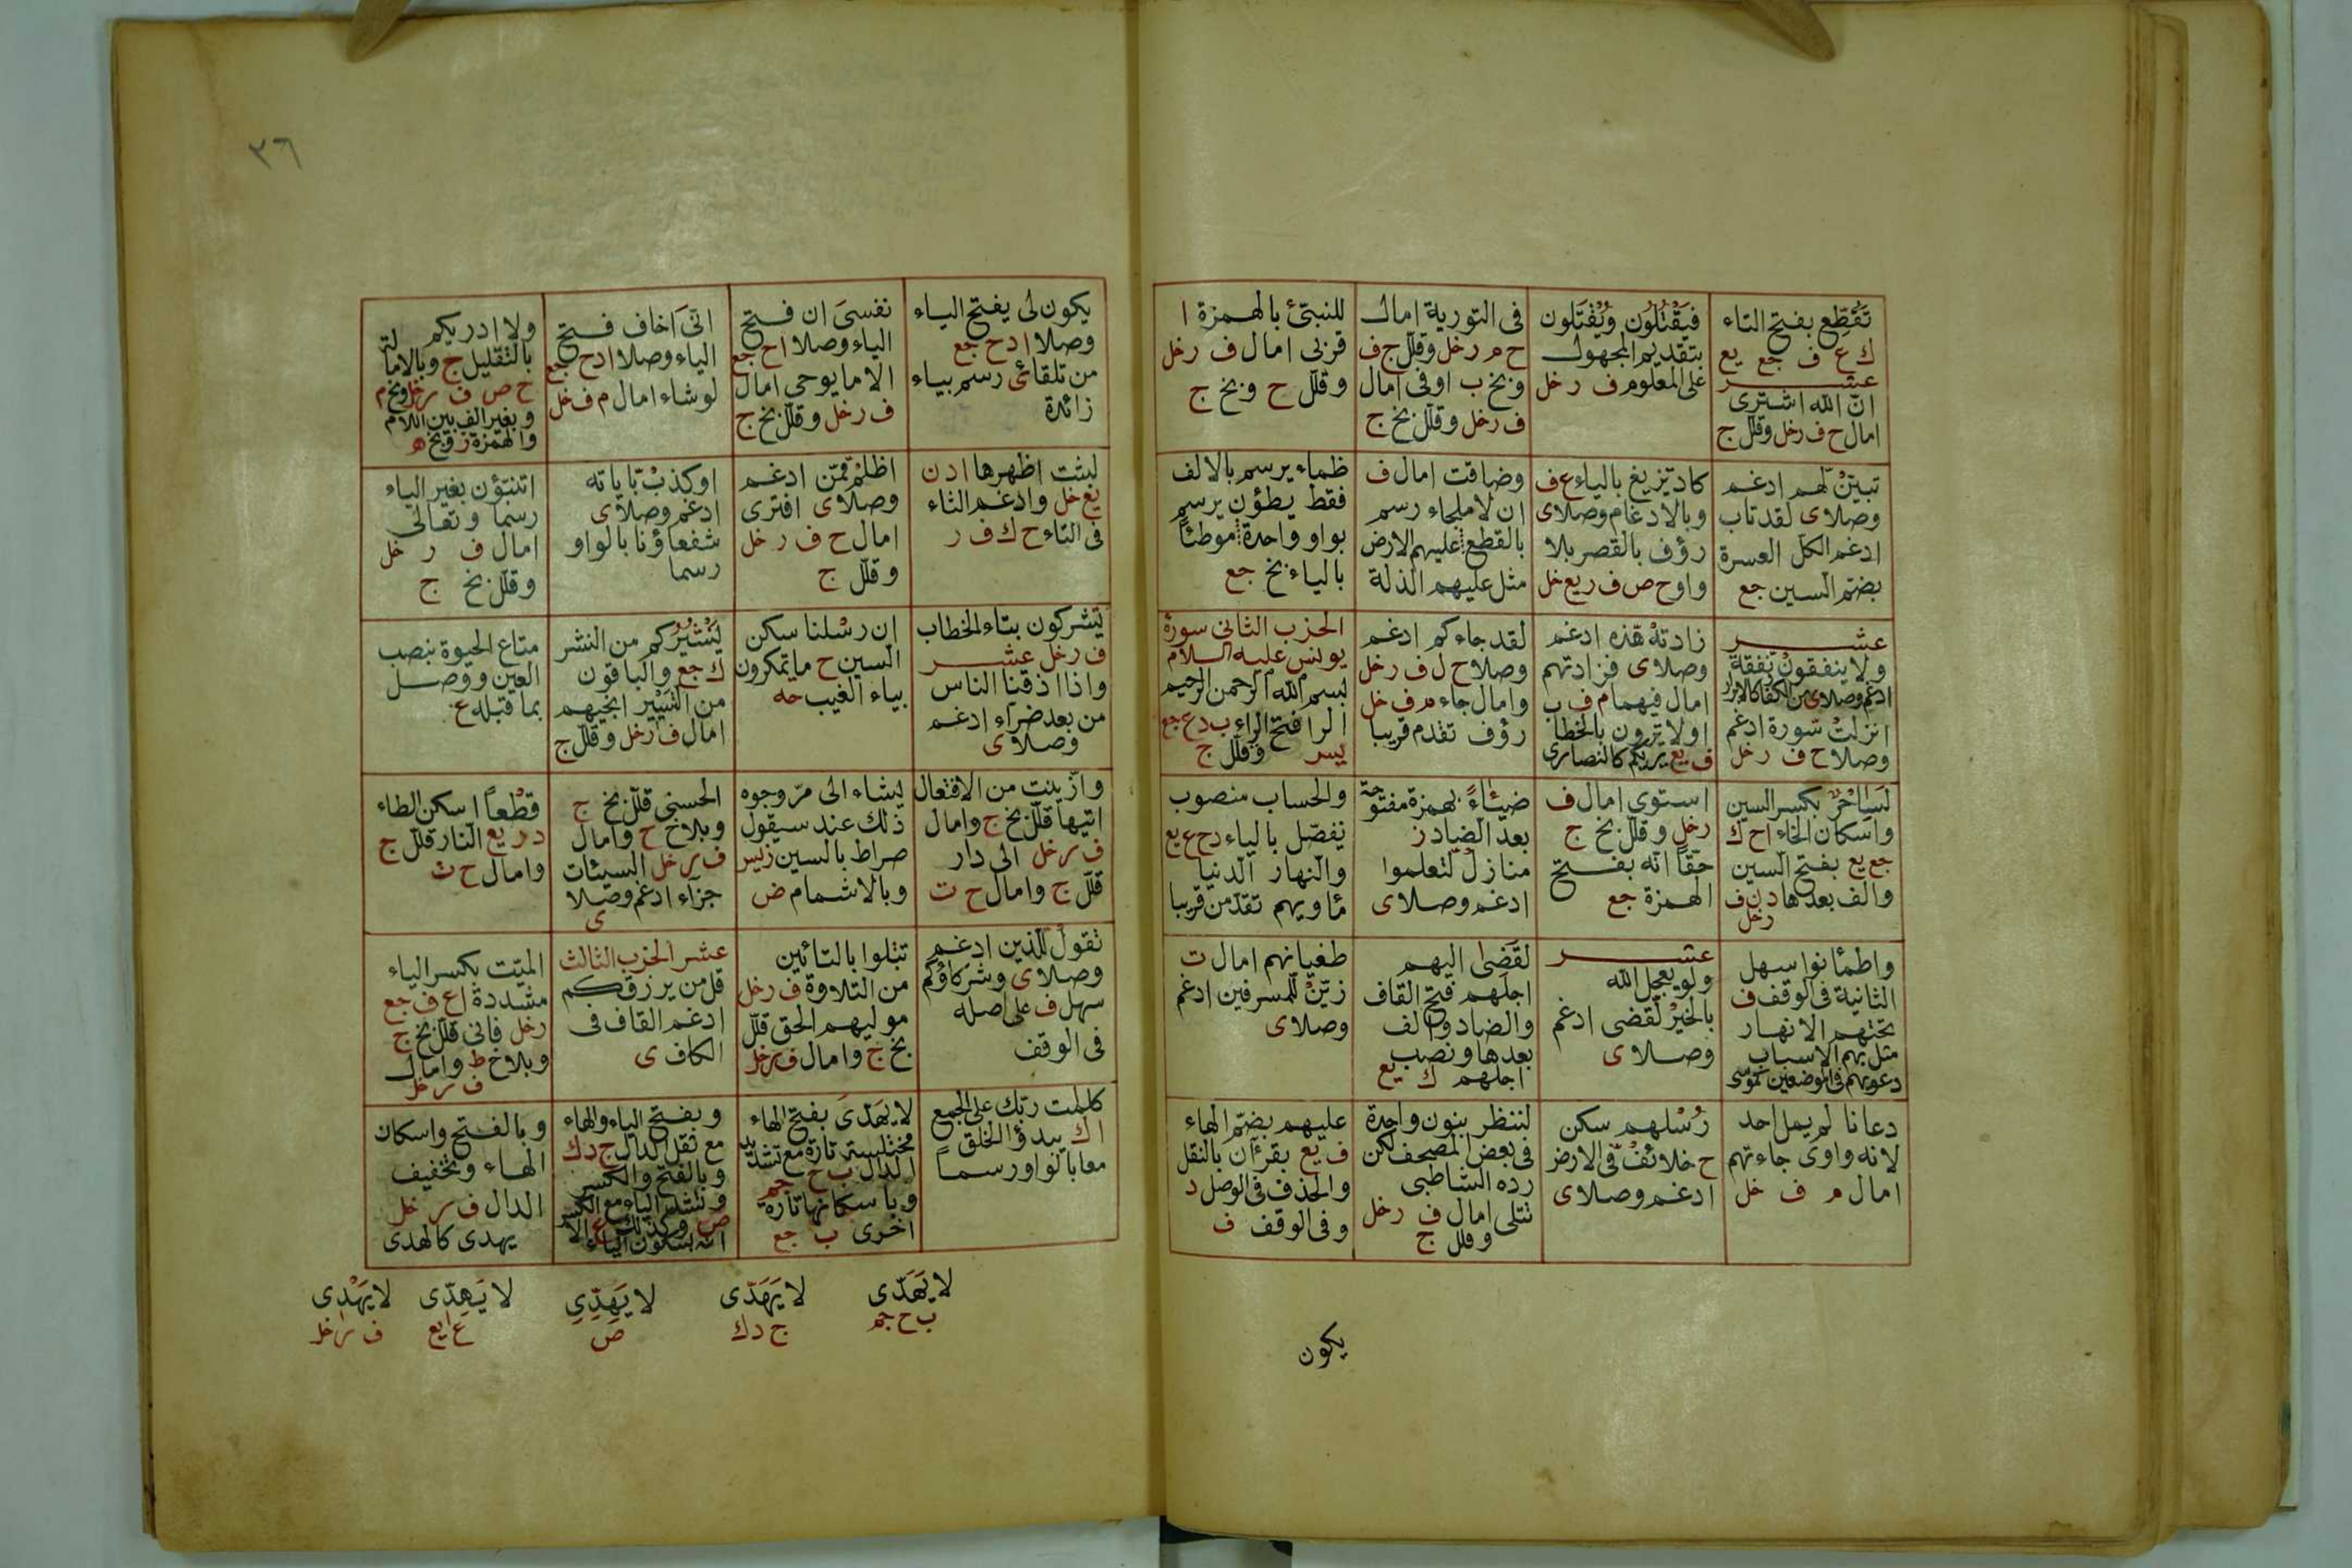 تَقَطّع بفتح التاء
ك ع ف جع يع
عشر
انّ الله اشترى
امال ح ف رخل وقلّل ج
فَيُقْتَلُون وَيَقْتُلون
بتقديم المجهول
على المعلوم ف ر خل
فى التورية امال
ح م رخل وقلّل ج ف
وبخ ب اوفى امال
ف رخل وقلّل بخ ج
للنبئ بالهمزة ا
قربى امال ف رخل
وقلّل ح وبخ ج
تبيّن لّهم ادغم
وصلا ى لقد تاب
ادغم الكلّ العسرة
بضمّ السين جع
كاد تّزيغ بالياء ع ف
وبالادغام وصلا ى
رؤف بالقصر بلا
واو ح ص ف ر يع خل
وضاقت امال ف
ان لا ملجاء رسم
بالقطع عليهم الارض
مثل عليهم الذلة
ظماء يرسم بالالف
فقط يطؤن يرسم
بواو واحدة موطئًا
بالياء بخ جع
عشر
ولا ينفقون نّفقة
ادغم وصلا ى من الكفار كالابرار
انزلتْ سّورة ادغم
وصلا ح ف رخل
زادتهْ هّذه ادغم
وصلا ى فزادتهم
امال فيهما م ف ب
اولا ترون بالخطاب
ف يع يريكم كالنصارى
لقد جاءكم ادغم
وصلا ح ل ف رخل
وامال جاء م ف خل
رؤف تقدم قريبا
الحزب الثانى سورة
يونس عليه السلام
بسم الله الرحمن الرحيم
الرا فتح الراء ب د ع جع
يسر وقلل ج
لَسِحْرٌ بكسر السين
واسكان الخاء ا ح ك
جع يع بفتح السين
والف بعدها د ن ف
رخل
استوى امال ف
رخل وقلّل بخ ج
حقّا انّه بفتح
الهمزة جع
ضئاءً بهمزة مفتوحة
بعد الضاد ز
منازل لّتعلموا
ادغم وصلا ى
والحساب منصوب
نفصّل بالياء د ح ع يع
والنهار الدنيا
مأويهم تقدّمن قريبا
واطمأنوا سهل
الثانية فى الوقف ف
تحتهم الانهار
مثل بهم الاسباب
دعويهم فى الموضعين كموسى
عشر
ولو يعجل الله
بالخير لّقضى ادغم
وصلا ى
لقَضَى اليهم
اجلَهم فتح القاف
والضاد والف
بعدها ونصب
اجلهم ك يع
طغيانهم امال ت
زيّن لّلمسرفين ادغم
وصلا ى
دعانا لم يمل احد
لانه واوى جاءتهم
امال م ف خل
رُسْلهم سكن
ح خلائفْ فّى الارض
ادغم وصلا ى
لننظر بنون واحدة
فى بعض المصحف لكن
رده الشاطبى
تتلى امال ف رخل
وقلل ج
عليهم بضمّ الهاء
ف يع بقرءان بالنقل
والحذف فى الوصل د
وفى الوقف ف
يكون
٣٦
يكون لى يفتح الياء
وصلا ا د ح جع
من تلقائ رسم بياء
زائدة
نفسىَ ان فتح
الياء وصلا ا ح جع
الا ما يوحى امال
ف رخل وقلّل بخ ج
انّىَ اخاف فتح
الياء وصلا ا د ح جع
لو شاء امال م ف خل
ولا ادريكم
بالتقليل ج وبالامالة
ح ص ف رخل وبخ م
وبغير الف بين اللام
والهمزة ز وبخ ه
لبثت اظهرها ا د ن
يع خل وادغم الثاء
فى التاء ح ك ف ر
اظلمْ مّمّن ادغم
وصلا ى افترى
امال ح ف رخل
وقلّل ج
اوكذبْ بّاياته
ادغم وصلا ى
شفعاؤنا بالواو
رسما
اتنبّؤن بغير الياء
رسما وتعالى
امال ف ر خل
وقلّل بخ ج
يشركون بتاء الخطاب
ف رخل عشر
واذا اذقنا الناس
من بعد ضّراء ادغم
وصلا ى
ان رسْلنا سكن
السين ح ما تمكرون
بياء الغيب حه
يَنْشُرُكم من النشر
ك جع والباقون
من التسيير انجيهم
امال ف رخل وقلّل ج
متاع الحيوة بنصب
العين ووصل
بما قبله ع
وازّينت من الافتعال
اتيها قلّل بخ ج وامال
ف رخل الى دار
قلّل ج وامال ح ت
يشاء الى مرّ وجوه
ذلك عند سيقول
صراط بالسين ز يس
وبالاشمام ض
الحسنى قلّل بخ ج
وبلا خ ح وامال
ف رخل السيئات
جزاء ادغم وصلا
ى
قطْعاً اسكن الطاء
د ر يع النار قلّل ج
وامال ح ت
نقول لّلذين ادغم
وصلا ى وشركاؤكم
سهل ف على اصله
فى الوقف
تتلوا بالتائين
من التلاوة ف رخل
موليهم الحق قلّل
بخ ج وامال ف رخل
عشر الحزب الثالث
قل من يرزقكم
ادغم القاف فى
الكاف ى
الميّت بكسر الياء
مشددة ا ع ف جع
رخل فانى قلّل بخ ج
وبلا خ ط وامال
ف رخل
كلمت ربّك على الجمع
ا ك يبدؤ الخلق
معا بالواو رسماً
لا يَهَدّى بفتح الهاء
مختلسة تارة مع تشديد
الدال ب ح جم
وباسكانها تارة
اخرى ب جع
وبفتح الياء والهاء
مع ثقل الدال ج د ك
وبالفتح والكسر
وتشديد الياء مع الكسر
ص وكذلك ع الا
انه بسكون الياء
وبالفتح واسكان
الهاء وتخفيف
الدال ف ر خل
يهدى كالهدى
لا يَهَدّى
ب ح جم
لا يَهَدّى
ج د ك
لا يِهِدّى
ص
لا يَهِدّى
ع يع
لا يَهْدِى
ف رخل